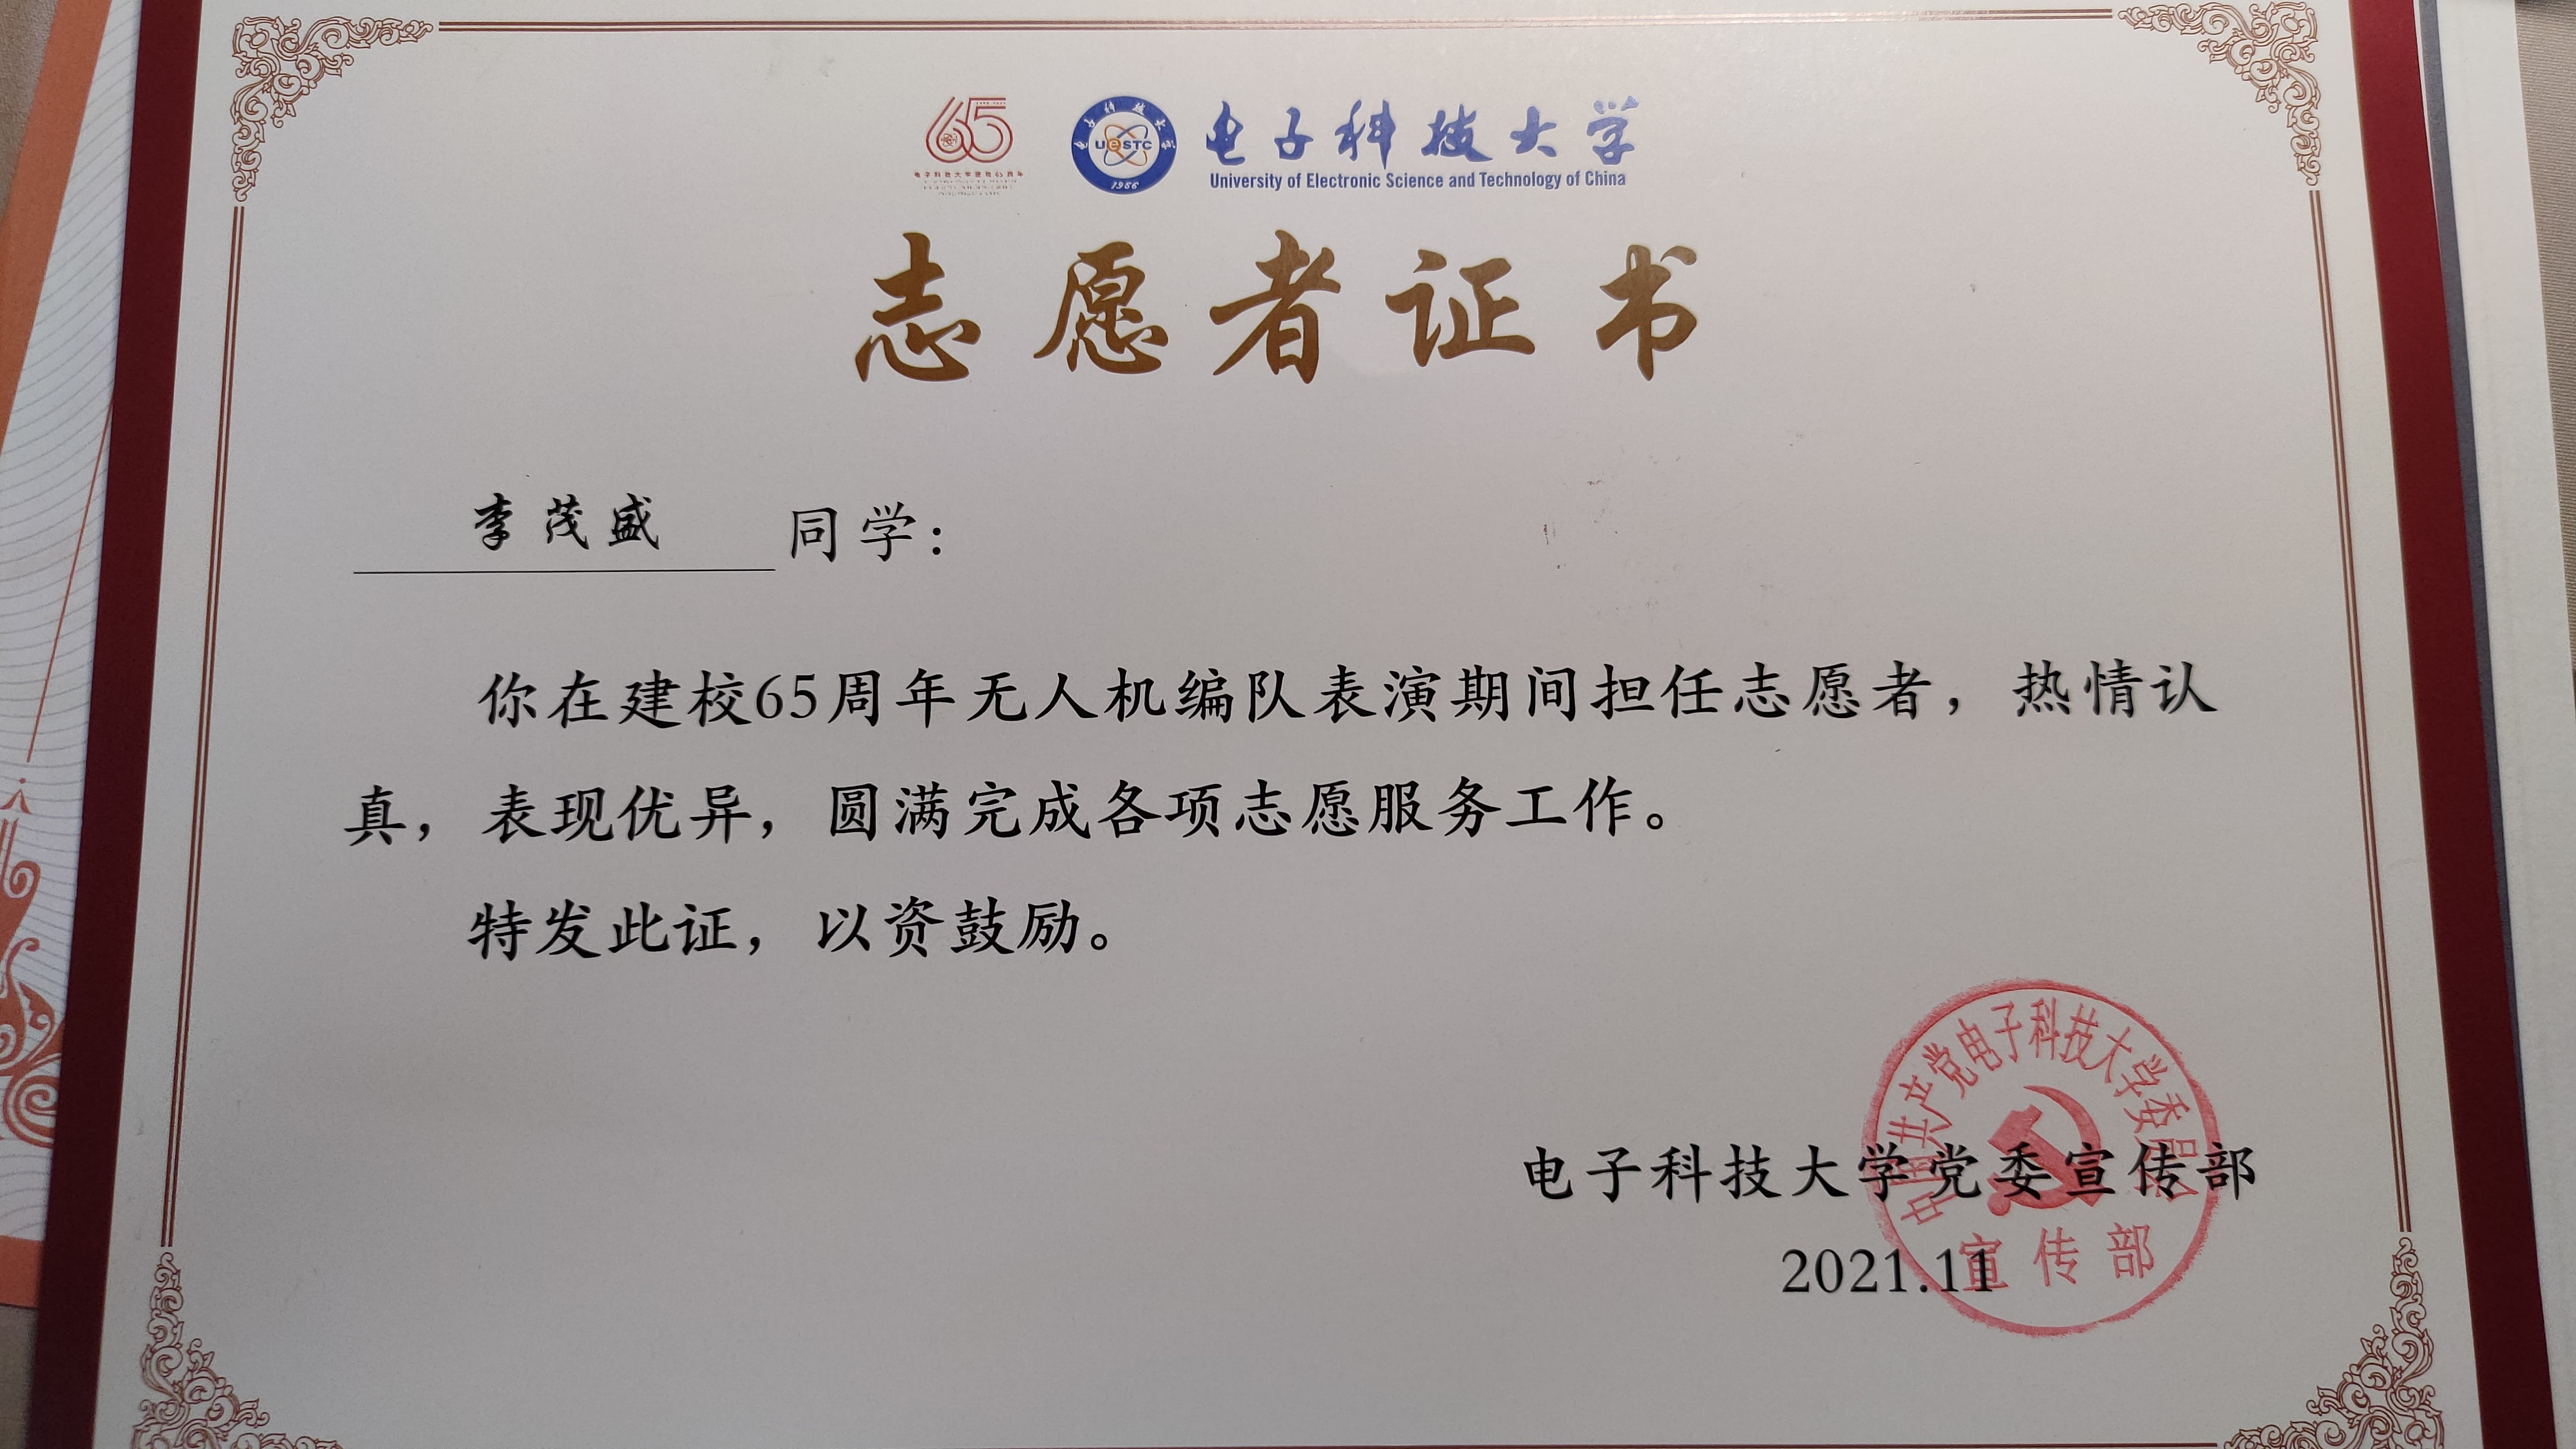 65
电子科技大学建校65周年
电子科技大学
UeSTC
1956
电子科技大学
University of Electronic Science and Technology of China
志愿者证书
李茂盛 同学：
你在建校65周年无人机编队表演期间担任志愿者，热情认
真，表现优异，圆满完成各项志愿服务工作。
特发此证，以资鼓励。
中国共产党电子科技大学委员会
电子科技大学党委宣传部
宣传部
2021.11